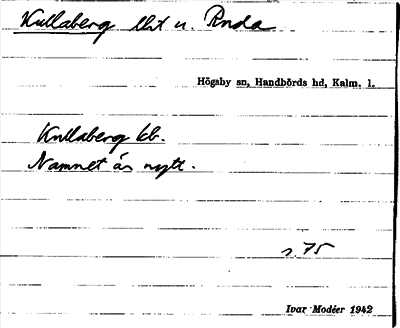 Kullaberg lht u. Ruda
Högsby sn, Handbörds hd, Kalm. l.
Kullaberg lb.
Namnet är nytt.
s. 75
Ivar Modéer 1942